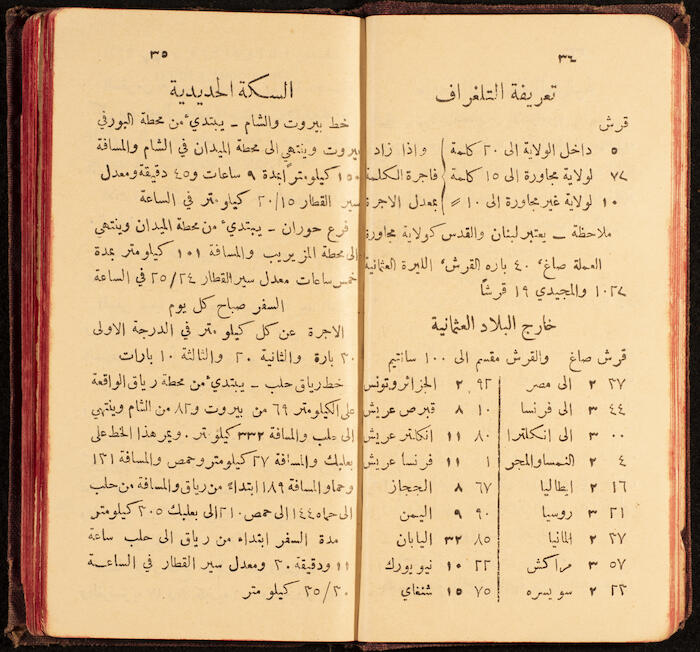 ٣٤
تعريفة التلغراف
قرش
٥ داخل الولاية الى ٢٠ كلمة واذا زاد
لولاية مجاورة الى ١٥ كلمة فاجرة الكلمة
١٠ لولاية غير مجاورة الى ١٠ = بمعدل الاجرة
ملاحظة – يعتبر لبنان والقدس كولاية مجاورة
العملة صاغ، ٤٠ باره القرش، الليرة العثمانية
١٠٢٧ والمجيدي ١٩ قرشا
خارج البلاد العثمانية
قرش صاغ والقرش مقسم الى ١٠٠ سانتيم
٢٧ ٢ الى مصر ٩٢ ٢ الجزائر وتونس
٤٤ ٣ الى فرنسا ١٠ ٨ قبرص عريش
٠٠ ٣ الى انكلترا ٨٠ ١١ انكلتر عريش
٤ ٢ النمسا والمجر ١ ١١ فرنسا عريش
١٦ ٢ ايطاليا ٦٧ ٨ الحجاز
٢١ ٣ روسيا ٩٠ ٩ اليمن
٢٧ ٢ المانيا ٨٥ ٣٢ اليابان
٥٧ ٣ مراكش ٢٢ ١٠ نيويورك
٢٢ ٢ سويسره ٧٥ ١٥ شنغاي
٣٥
السكة الحديدية
خط بيروت والشام – يبتدئ من محطة البور في
بيروت وينتهي الى محطة الميدان في الشام والمسافة
١٥٠ كيلومتراً بمدة ٩ ساعات و٤٥ دقيقة ومعدل
سير القطار ٢٠/١٥ كيلومتر في الساعة
فرع حوران – يبتدئ من محطة الميدان وينتهى
الى محطة المزيريب والمسافة ١٠١ كيلومتر بمدة
خمس ساعات معدل سير القطار ٢٥/٢٤ في الساعة
السفر صباح كل يوم
الاجرة عن كل كيلو متر في الدرجة الاولى
٣٠ بارة والثانية ٢٠ والثالثة ١٠ بارات
خط رياق حلب – يبتدئ من محطة رياق الواقعة
على الكيلومتر ٦٩ من بيروت و٨٢ من الشام وينتهي
الى حلب والمسافة ٣٣٢ كيلومتر. ويمر هذا الخط على
بعلبك والمسافة ٢٧ كيلومتر وحمص والمسافة ١٢١
وحما والمسافة ١٨٩ ابتداءً من رياق والمسافة من حلب
الى حماه ١٤٤ الى حمص ٢١٠ الى بعلبك ٢٠٥ كيلومتر
مدة السفر ابتداء من رياق الى حلب ساعة
١١ ودقيقة ٢٠ ومعدل سير القطار في الساعة
٢٥/٢٠ كيلو متر